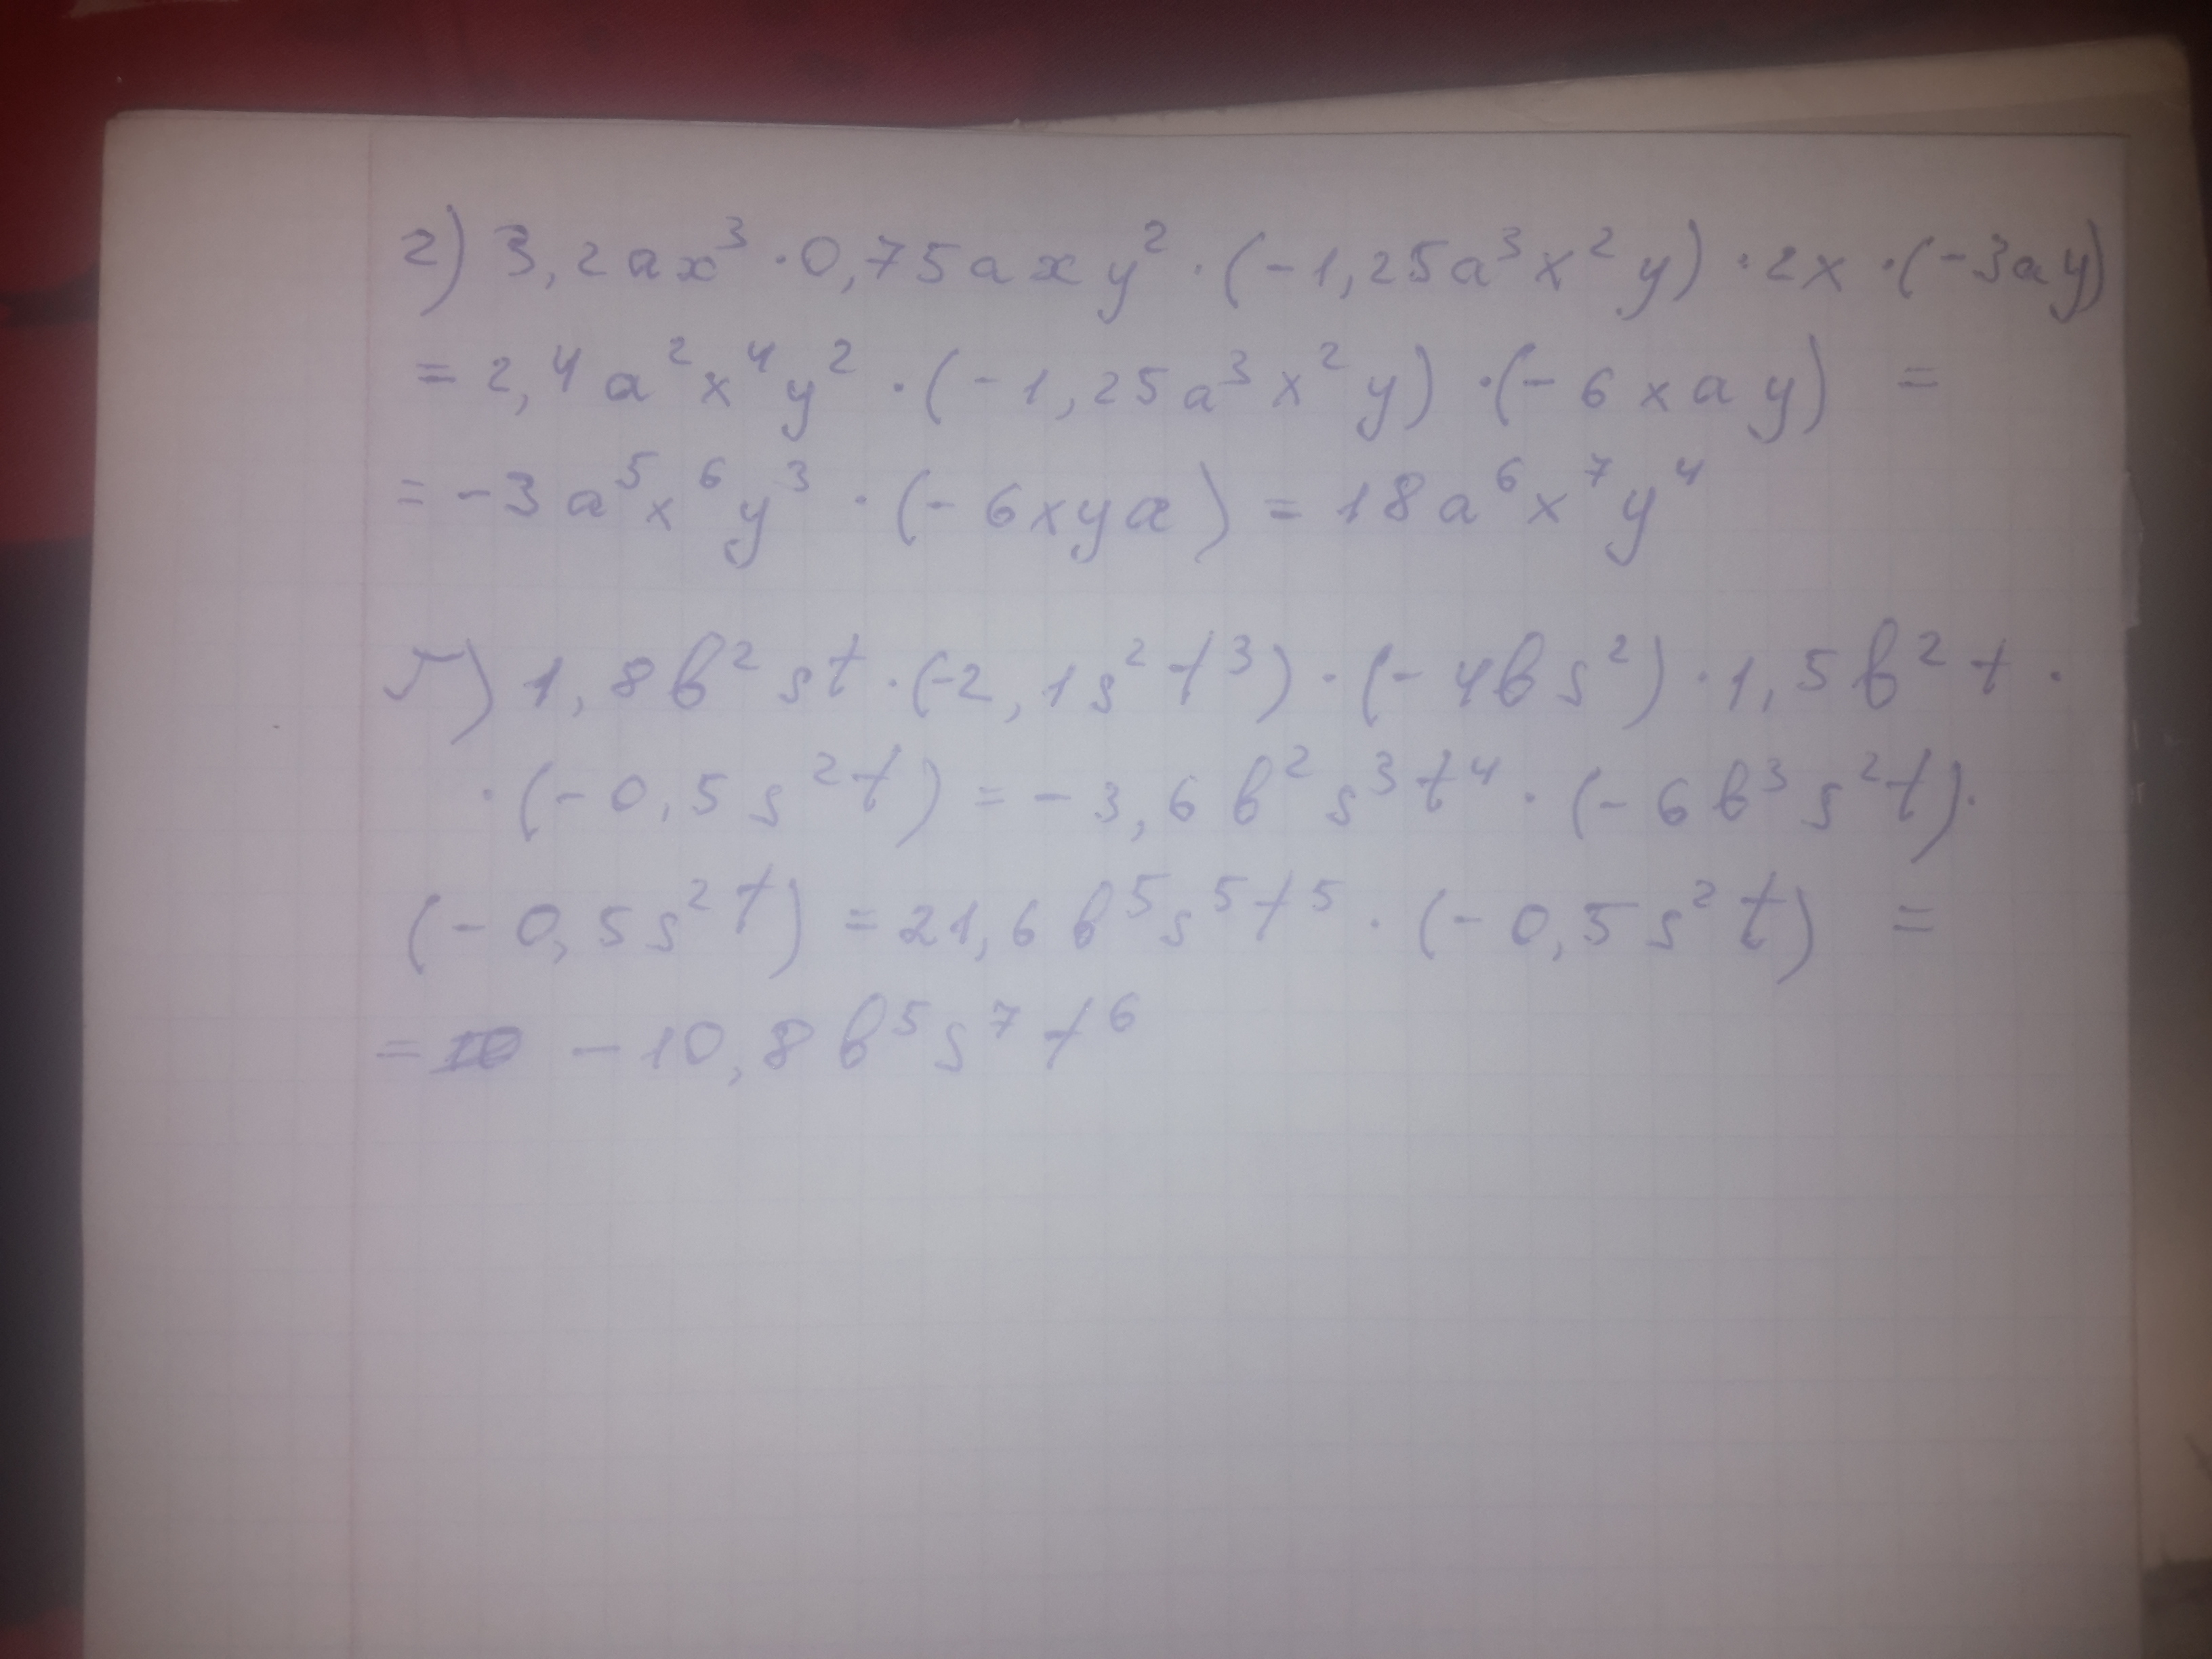 г) 3,2ax³·0,75axy²·(-1,25a³x²y)·2x·(-3ay)
= 2,4a²x⁴y²·(-1,25a³x²y)·(-6xay) =
= -3a⁵x⁶y³·(-6xya) = 18a⁶x⁷y⁴
1,8b²st·(-2,1s²t³)·(-4bs²)·1,5b²t·
·(-0,5s²t) = -3,6b²s³t⁴·(-6b³s²t)·
(-0,5s²t) = 21,6b⁵s⁵t⁵·(-0,5s²t) =
= -10,8b⁵s⁷t⁶